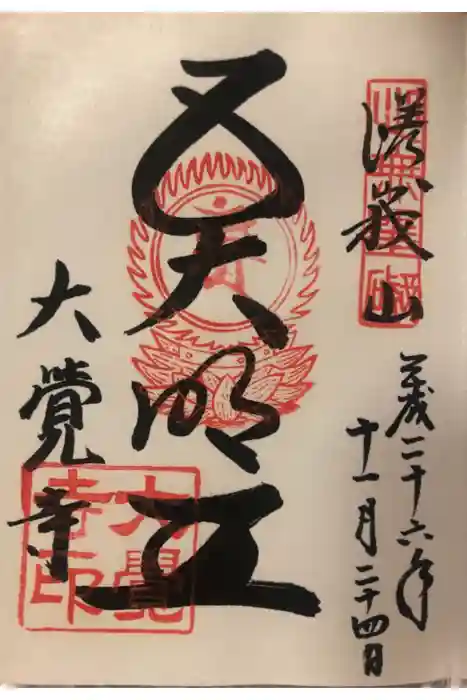 嵯峨山
平成二十六年
十一月二十四日
五大明王
大覺寺
大覺
寺印